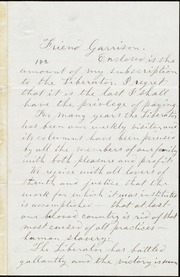 Friend Garrison.
Enclosed is the
amount of my subscription
to the Liberator. I regret
that it is the last I shall
have the privilege of paying.
For many years the Liberator
has been our weekly visitor, and
its columns have been perused
by all the members of our family
with both pleasure and profit.
We rejoice with all lovers of
truth and justice that the
work for which it was instituted is
accomplished — that at last
our beloved country is rid of that
most cursed of all practices —
human slavery.
The Liberator has battled
gallantly and the victory is